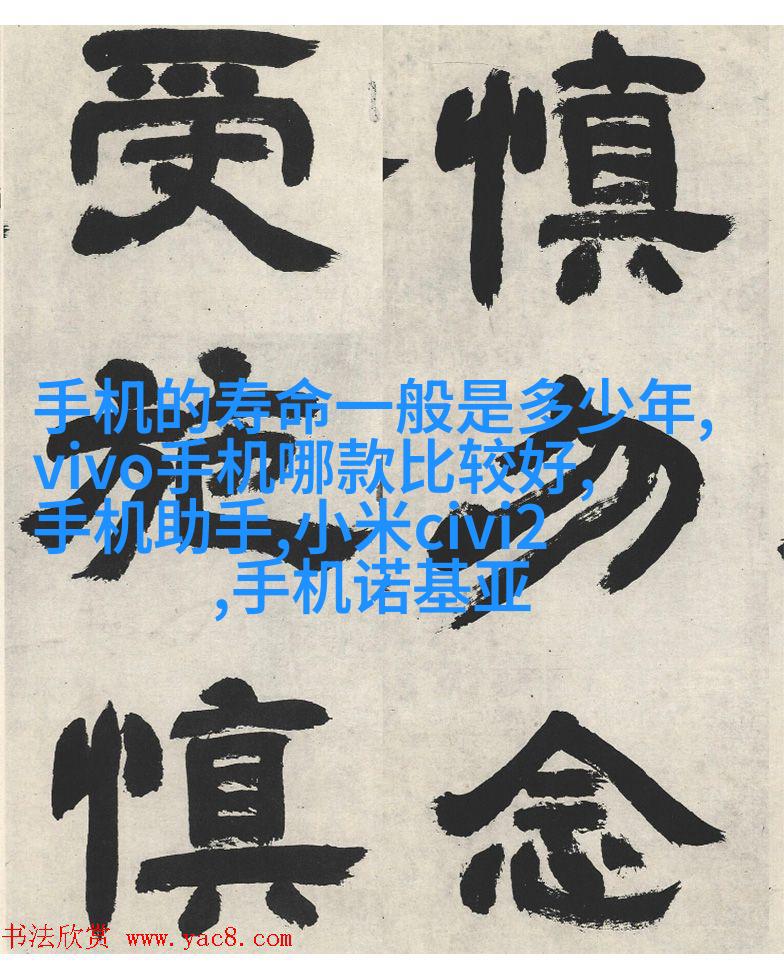 慎勿念
受施慎
手机的寿命一般是多少年,
vivo手机哪款比较好,
手机助手,小米civi2
,手机诺基亚
书法欣赏 www.yac8.com